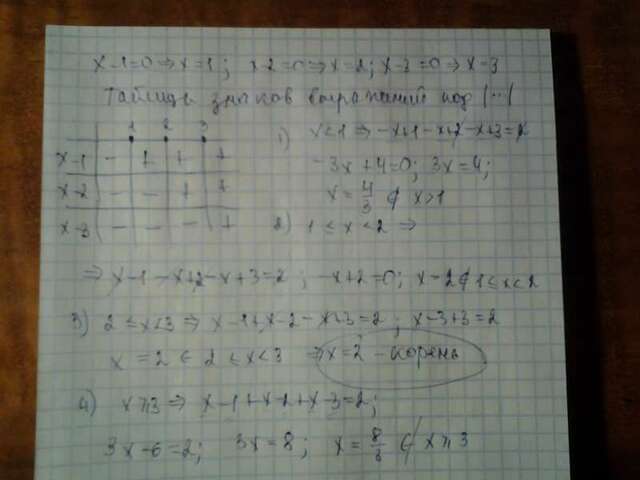 x-1=0⇒x=1; x-2=0⇒x=2; x-3=0⇒x=3
Таблица знаков выражений под |...|
1 2 3
x-1 - + + +
x-2 - - + +
x-3 - - - +
1) x<1 ⇒ -x+1-x+2-x+3=2
-3x+4=0; 3x=4;
x=4/3 ∉ x>1
2) 1≤x<2 ⇒
⇒ x-1-x+2-x+3=2; -x+2=0; x=2∉1≤x<2
3) 2≤x<3 ⇒ x-1+x-2-x+3=2; x-3+3=2
x=2 ∈ 2≤x<3 ⇒x=2 - корень
4) x⩾3 ⇒ x-1+x-2+x-3=2;
3x-6=2; 3x=8; x=8/3 ∉ x⩾3